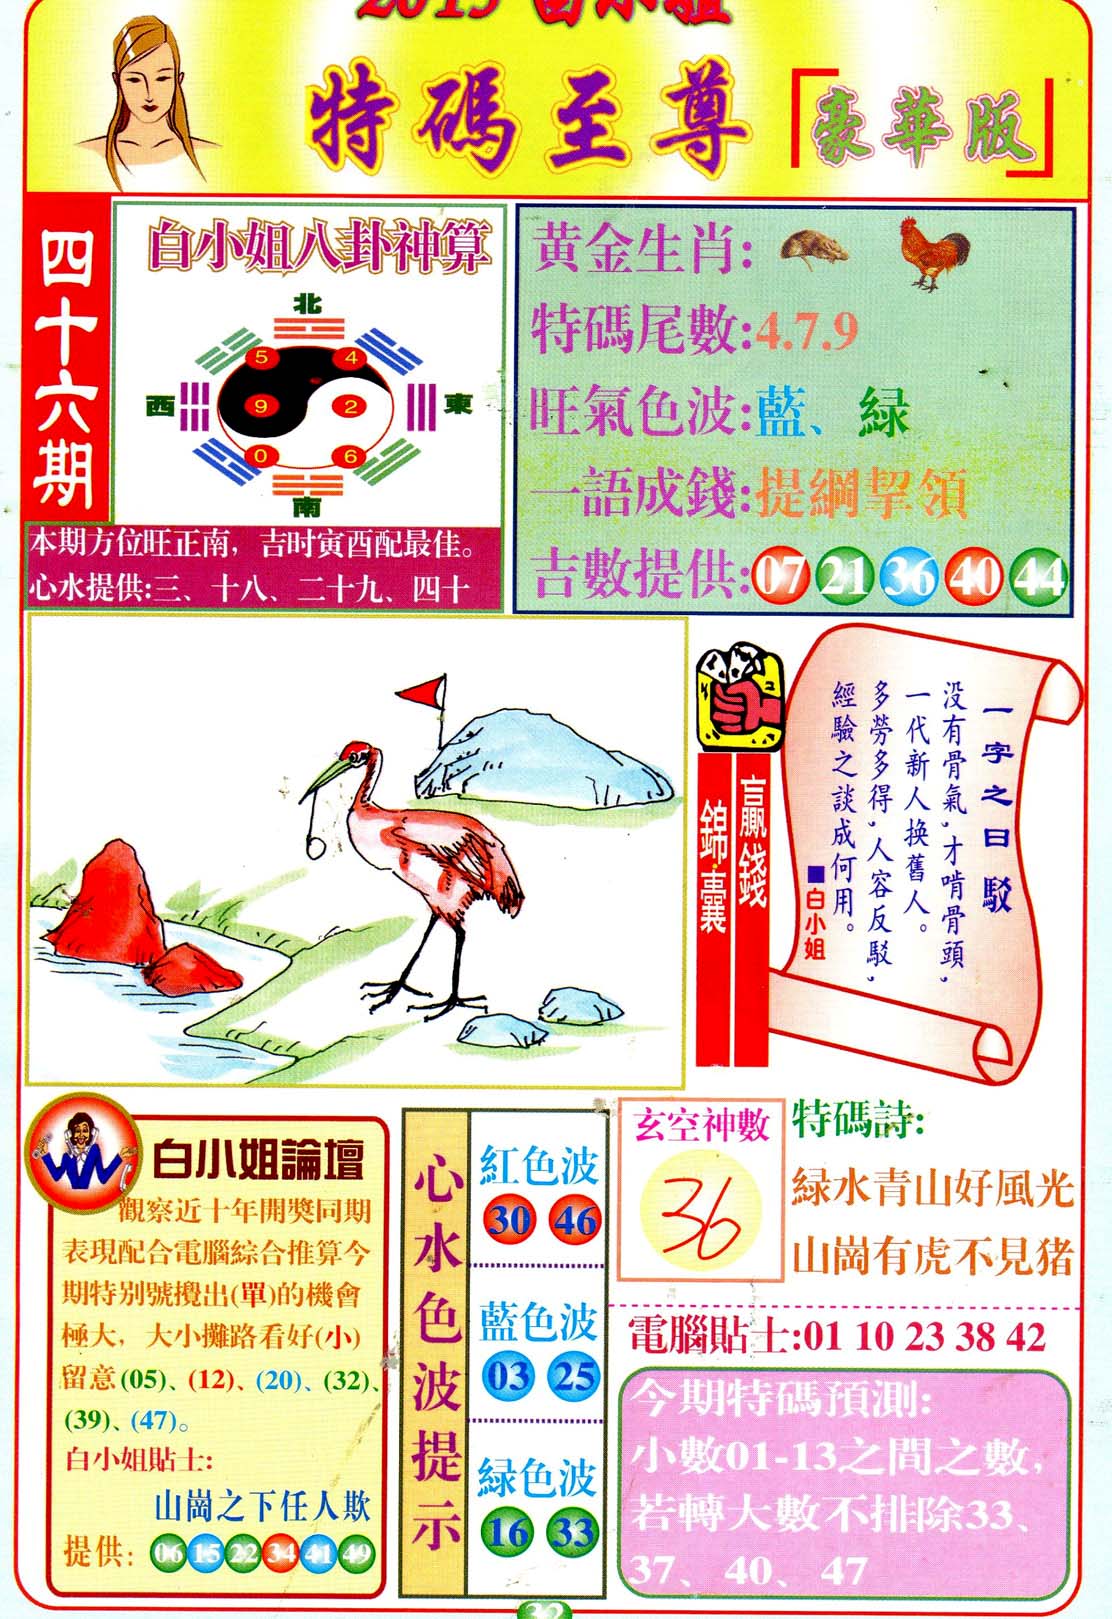 2015 白小姐
特碼至尊「豪華版」
四十六期
白小姐八卦神算
北
5 4
西 9 2 東
0 6
南
本期方位旺正南，吉时寅酉配最佳。
心水提供:三、十八、二十九、四十
黄金生肖:
特碼尾數:4.7.9
旺氣色波:藍、緑
一語成錢:提綱挈領
吉數提供:07 21 36 40 44
贏錢
錦囊
一字之曰 駁
没有骨氣，才啃骨頭，
一代新人换舊人。
多勞多得，人容反駁，
經驗之談成何用。
■白小姐
白小姐論壇
觀察近十年開獎同期
表現配合電腦綜合推算今
期特别號攪出(單)的機會
極大，大小攤路看好(小)
留意(05)、(12)、(20)、(32)、
(39)、(47)。
白小姐貼士:
山崗之下任人欺
提供: 06 15 22 34 41 49
心水色波提示
紅色波
30 46
藍色波
03 25
緑色波
16 33
玄空神數
36
特碼詩:
緑水青山好風光
山崗有虎不見猪
電腦貼士:01 10 23 38 42
今期特碼預測:
小數01-13之間之數，
若轉大數不排除33、
37、40、47
32